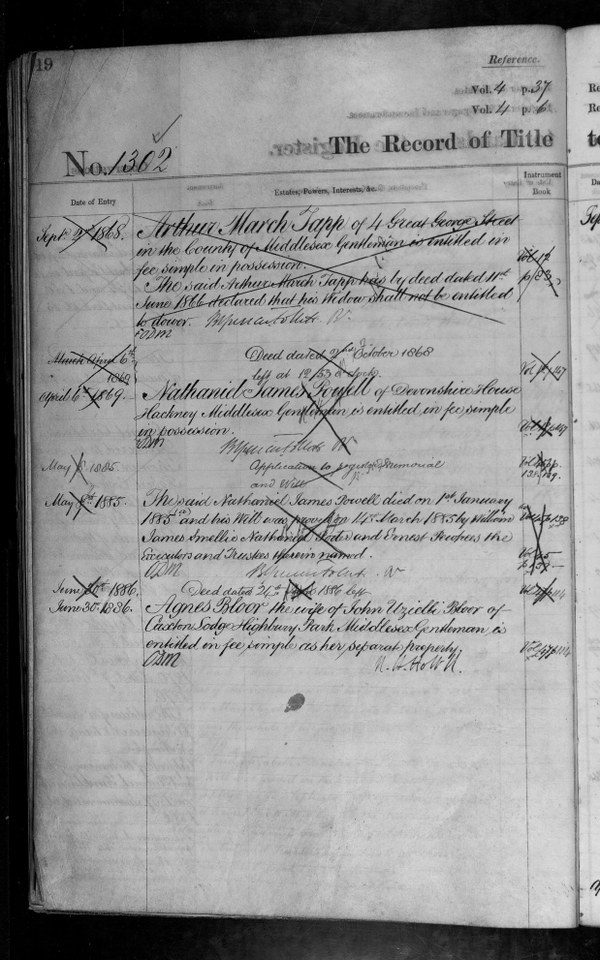 19
Reference.
Vol. 4 p. 37
Vol. 4 p. 6
The Record of Title
No. 1362
Date of Entry
Estates, Powers, Interests, &c.
Instrument Book
Sept. 1868.
Arthur March Tapp of 4 Great George Street
in the County of Middlesex Gentleman is entitled in
fee simple in possession.
The said Arthur March Tapp has by deed dated 11th
June 1866 declared that his Widow shall not be entitled
to dower.
ODM
Deed dated 2nd October 1868
left at 12/53 o'clock.
April 6th 1869.
Nathaniel James Powell of Devonshire House
Hackney Middlesex Gentleman is entitled in fee simple
in possession.
ODM
May 8 1885
Application to register Memorial
and Will
May 8th 1885.
The said Nathaniel James Powell died on 1st January
1885 and his Will was proved on 14th March 1885 by William
James Smellie Nathaniel and Ernest the
Executors and Trustees therein named.
ODM
June 30th 1886.
Deed dated 24th 1886 left
June 30th 1886.
Agnes Bloor the wife of John Uzielli Bloor of
Caxton Lodge Highbury Park Middlesex Gentleman is
entitled in fee simple as her separate property.
ODM